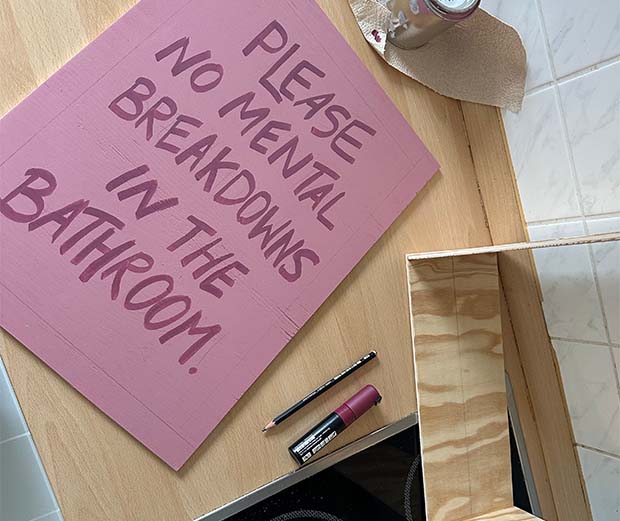 PLEASE
NO MENTAL
BREAKDOWNS
IN THE
BATHROOM.